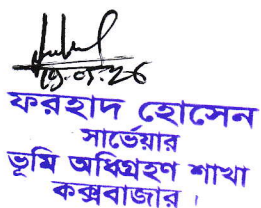 19.05.26
ফরহাদ হোসেন
সার্ভেয়ার
ভূমি অধিগ্রহণ শাখা
কক্সবাজার।